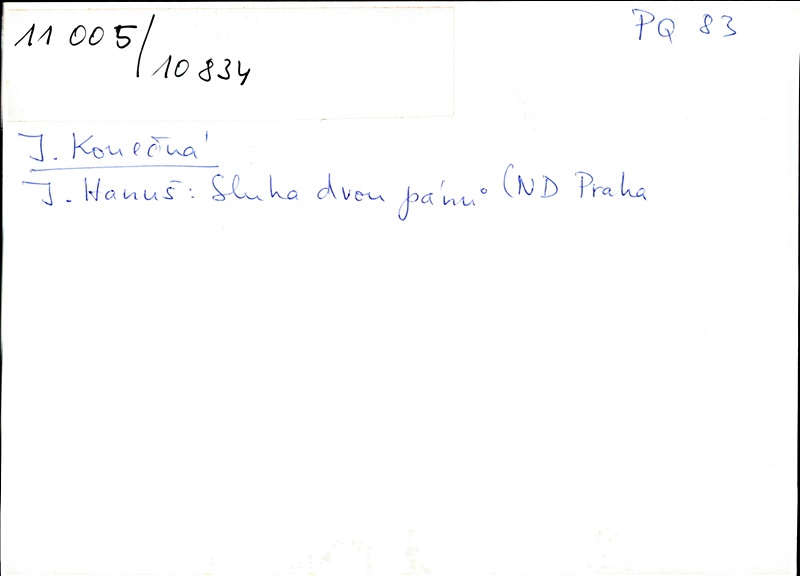 11 005/10 834
PQ 83
J. Konečná
J. Hanuš: Sluha dvou pánů (ND Praha